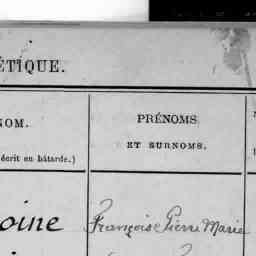 ÉTIQUE.
NOM.
PRÉNOMS
ET SURNOMS.
écrit en bâtarde.)
oine Françoise Pierre Marie